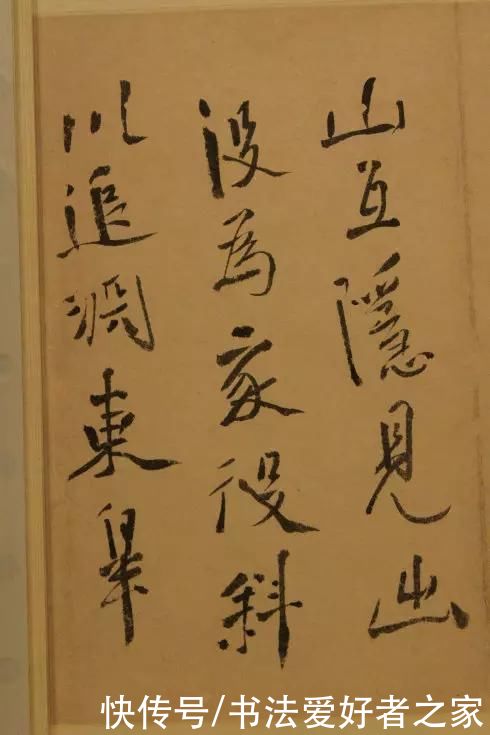 山互隱見出
没為我役斜
川追淵東皋
快传号/书法爱好者之家